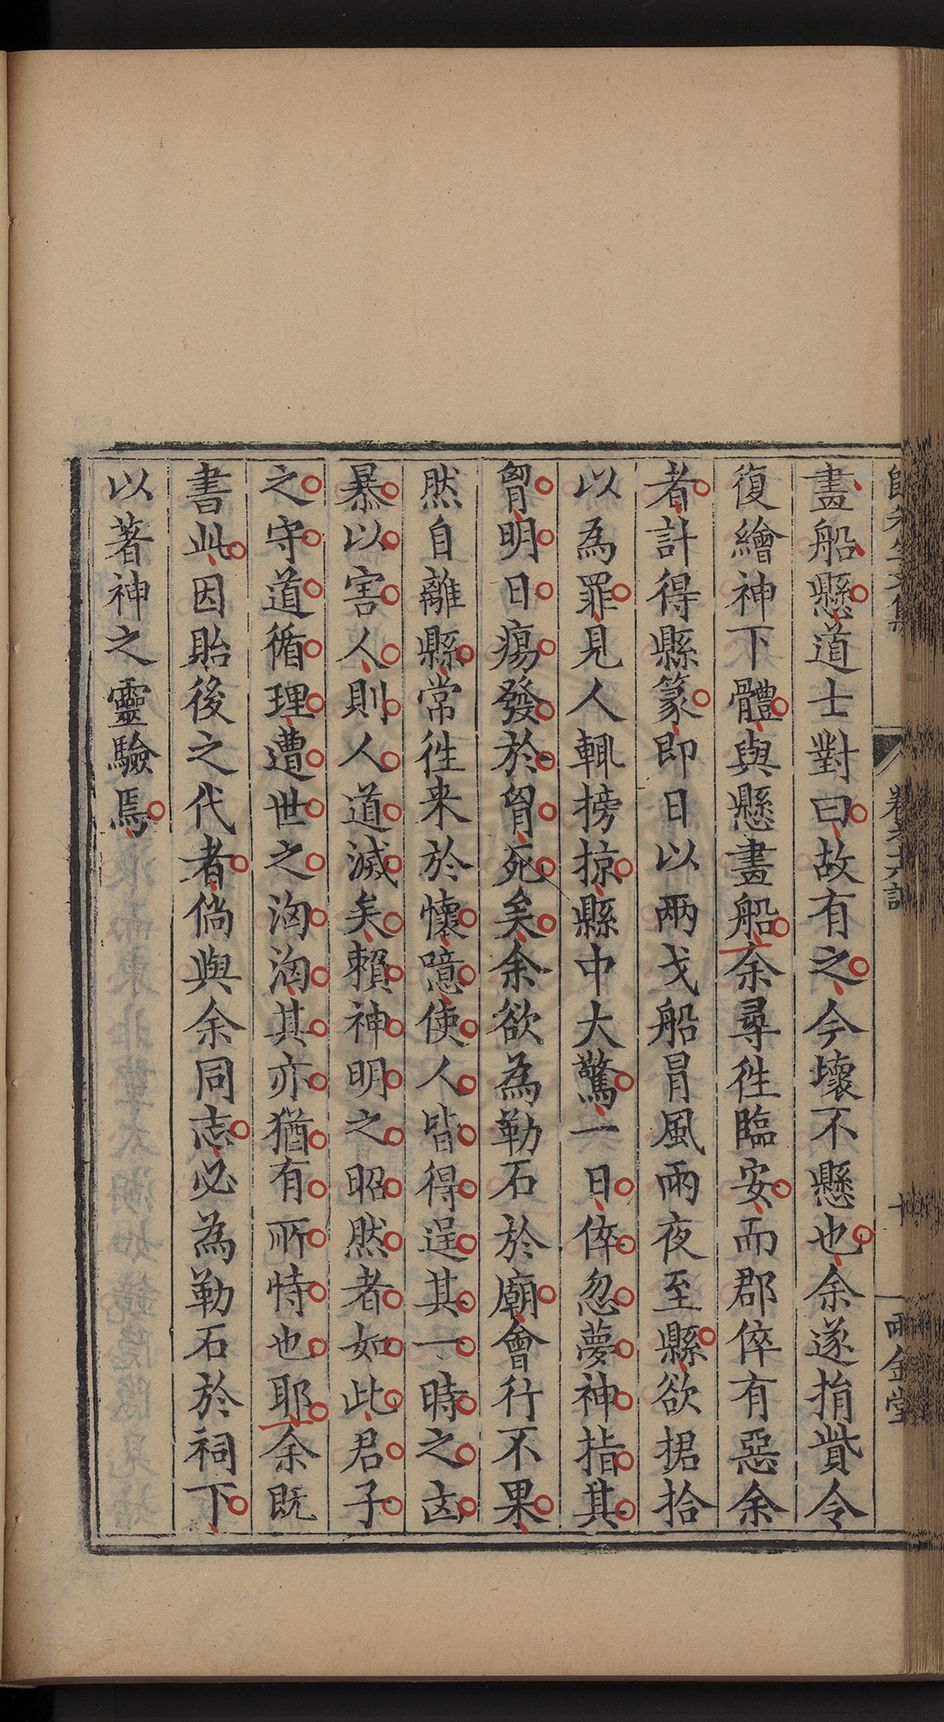 畫船懸道士對曰故有之今壞不懸也余遂捐貲令
復繪神下體與懸畫船余尋徃臨安而郡倅有惡余
者計得縣篆即日以兩戈船冒風雨夜至縣欲捃拾
以為罪見人輒搒掠縣中大驚一日倅忽夢神指其
胷明日瘍發於胷死矣余欲為勒石於廟會行不果
然自離縣常徃来於懷噫使人皆得逞其一時之㐫
暴以害人則人道滅矣賴神明之昭然者如此君子
之守道循理遭世之洶洶其亦猶有所恃也耶余既
書此因貽後之代者倘與余同志必為勒石於祠下
以著神之靈驗焉